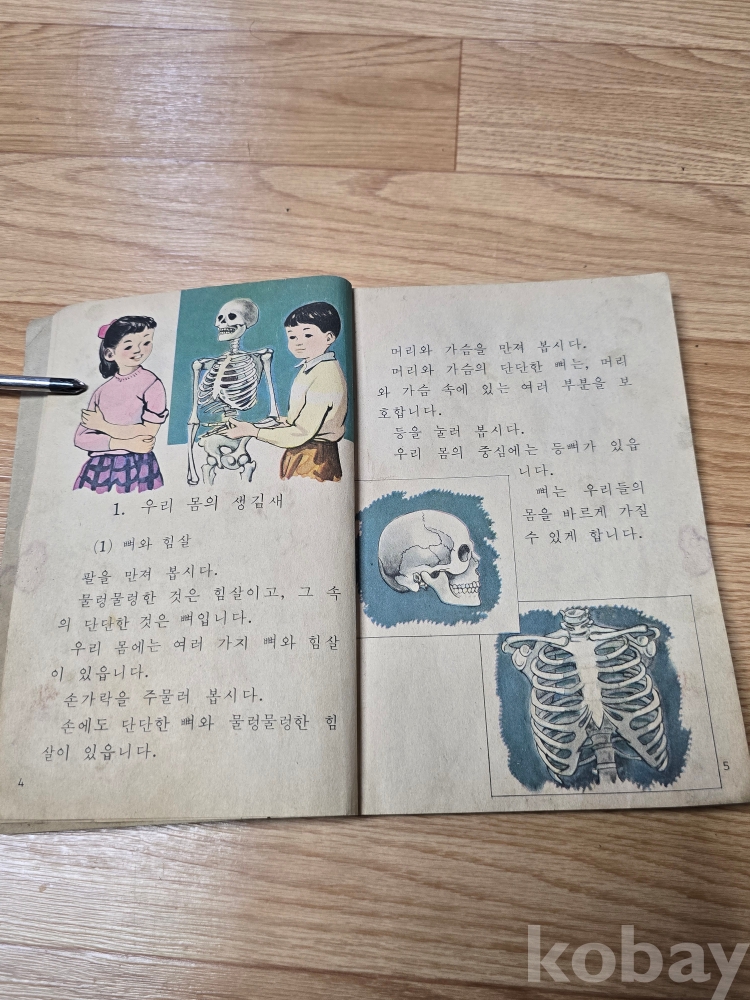 1. 우리 몸의 생김새
(1) 뼈와 힘살
팔을 만져 봅시다.
물렁물렁한 것은 힘살이고, 그 속
의 단단한 것은 뼈입니다.
우리 몸에는 여러 가지 뼈와 힘살
이 있읍니다.
손가락을 주물러 봅시다.
손에도 단단한 뼈와 물렁물렁한 힘
살이 있읍니다.
4
머리와 가슴을 만져 봅시다.
머리와 가슴의 단단한 뼈는, 머리
와 가슴 속에 있는 여러 부분을 보
호합니다.
등을 눌러 봅시다.
우리 몸의 중심에는 등뼈가 있읍
니다.
뼈는 우리들의
몸을 바르게 가질
수 있게 합니다.
5
kobay